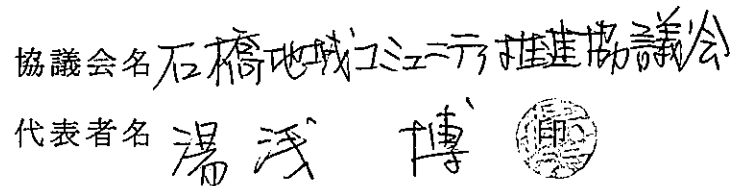 協議会名 石橋地域コミュニティ推進協議会
代表者名 湯浅 博 印